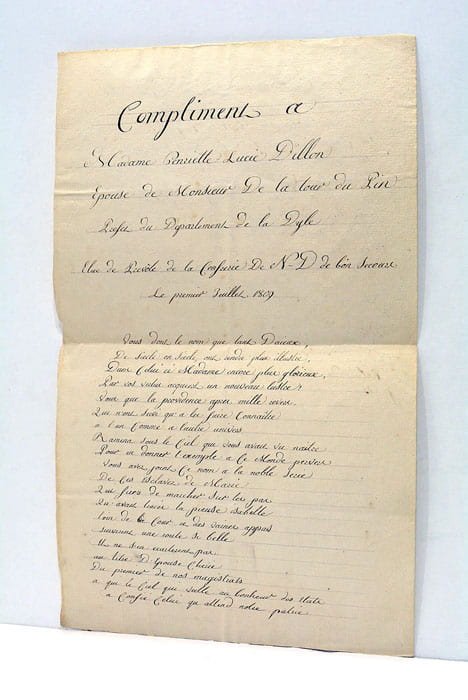 Compliment a
Madame henriette Lucie Dillon
Epouse de Monsieur De la tour du Pin
Prefet du Departement de la Dyle
Elue de Prevote de la Confrerie De N-D de bon Secours
Le premier Juillet 1809
Vous dont le nom que tant
De siecle en siecle, ont rendu plus illustre,
Dans Celui ci Madame encore plus glorieux,
Par vos vertus acquiert un nouveau lustre?
Vous que la providence apres mille revers
Qui n'ont servi qu'a les faire Connaitre
a l'un Comme a l'autre univers
Ramena sous le Ciel qui vous avait vu naitre
Pour en donner l'exemple a Ce Monde pervers
Vous avez joint Ce nom a la noble Serie
De Ces Esclaves de Marie
Qui fiers de marcher sur les pas
Qu'avait tracés la pieuse isabelle
Loin de la Cour et des vaines appas
suivirent une route si belle
Et ne s'en ecarterent pas
au titre D'Epouse Cherie
Du premier de nos magistrats
a que le Ciel qui veille au bonheur des etats
a Confié Celui qu'attend notre patrie